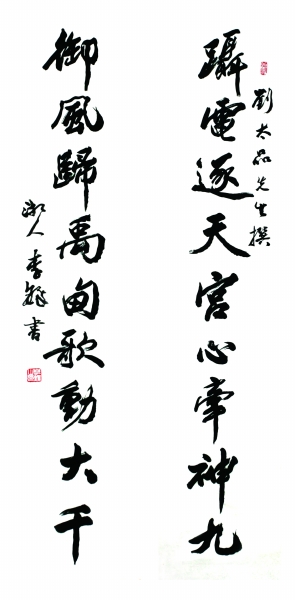 蹑電逐天宫心牵神九
劉太品先生撰
御風歸禹甸歌動大千
湘人李鐸書